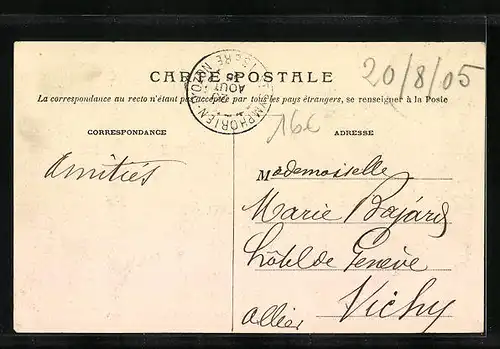 CARTE POSTALE
20/8/05
La correspondance au recto n'étant pas acceptée par tous les pays étrangers, se renseigner à la Poste
CORRESPONDANCE
ADRESSE
Amitiés
Mademoiselle
Marie Bajard
hôtel de Genève
Vichy
Allier